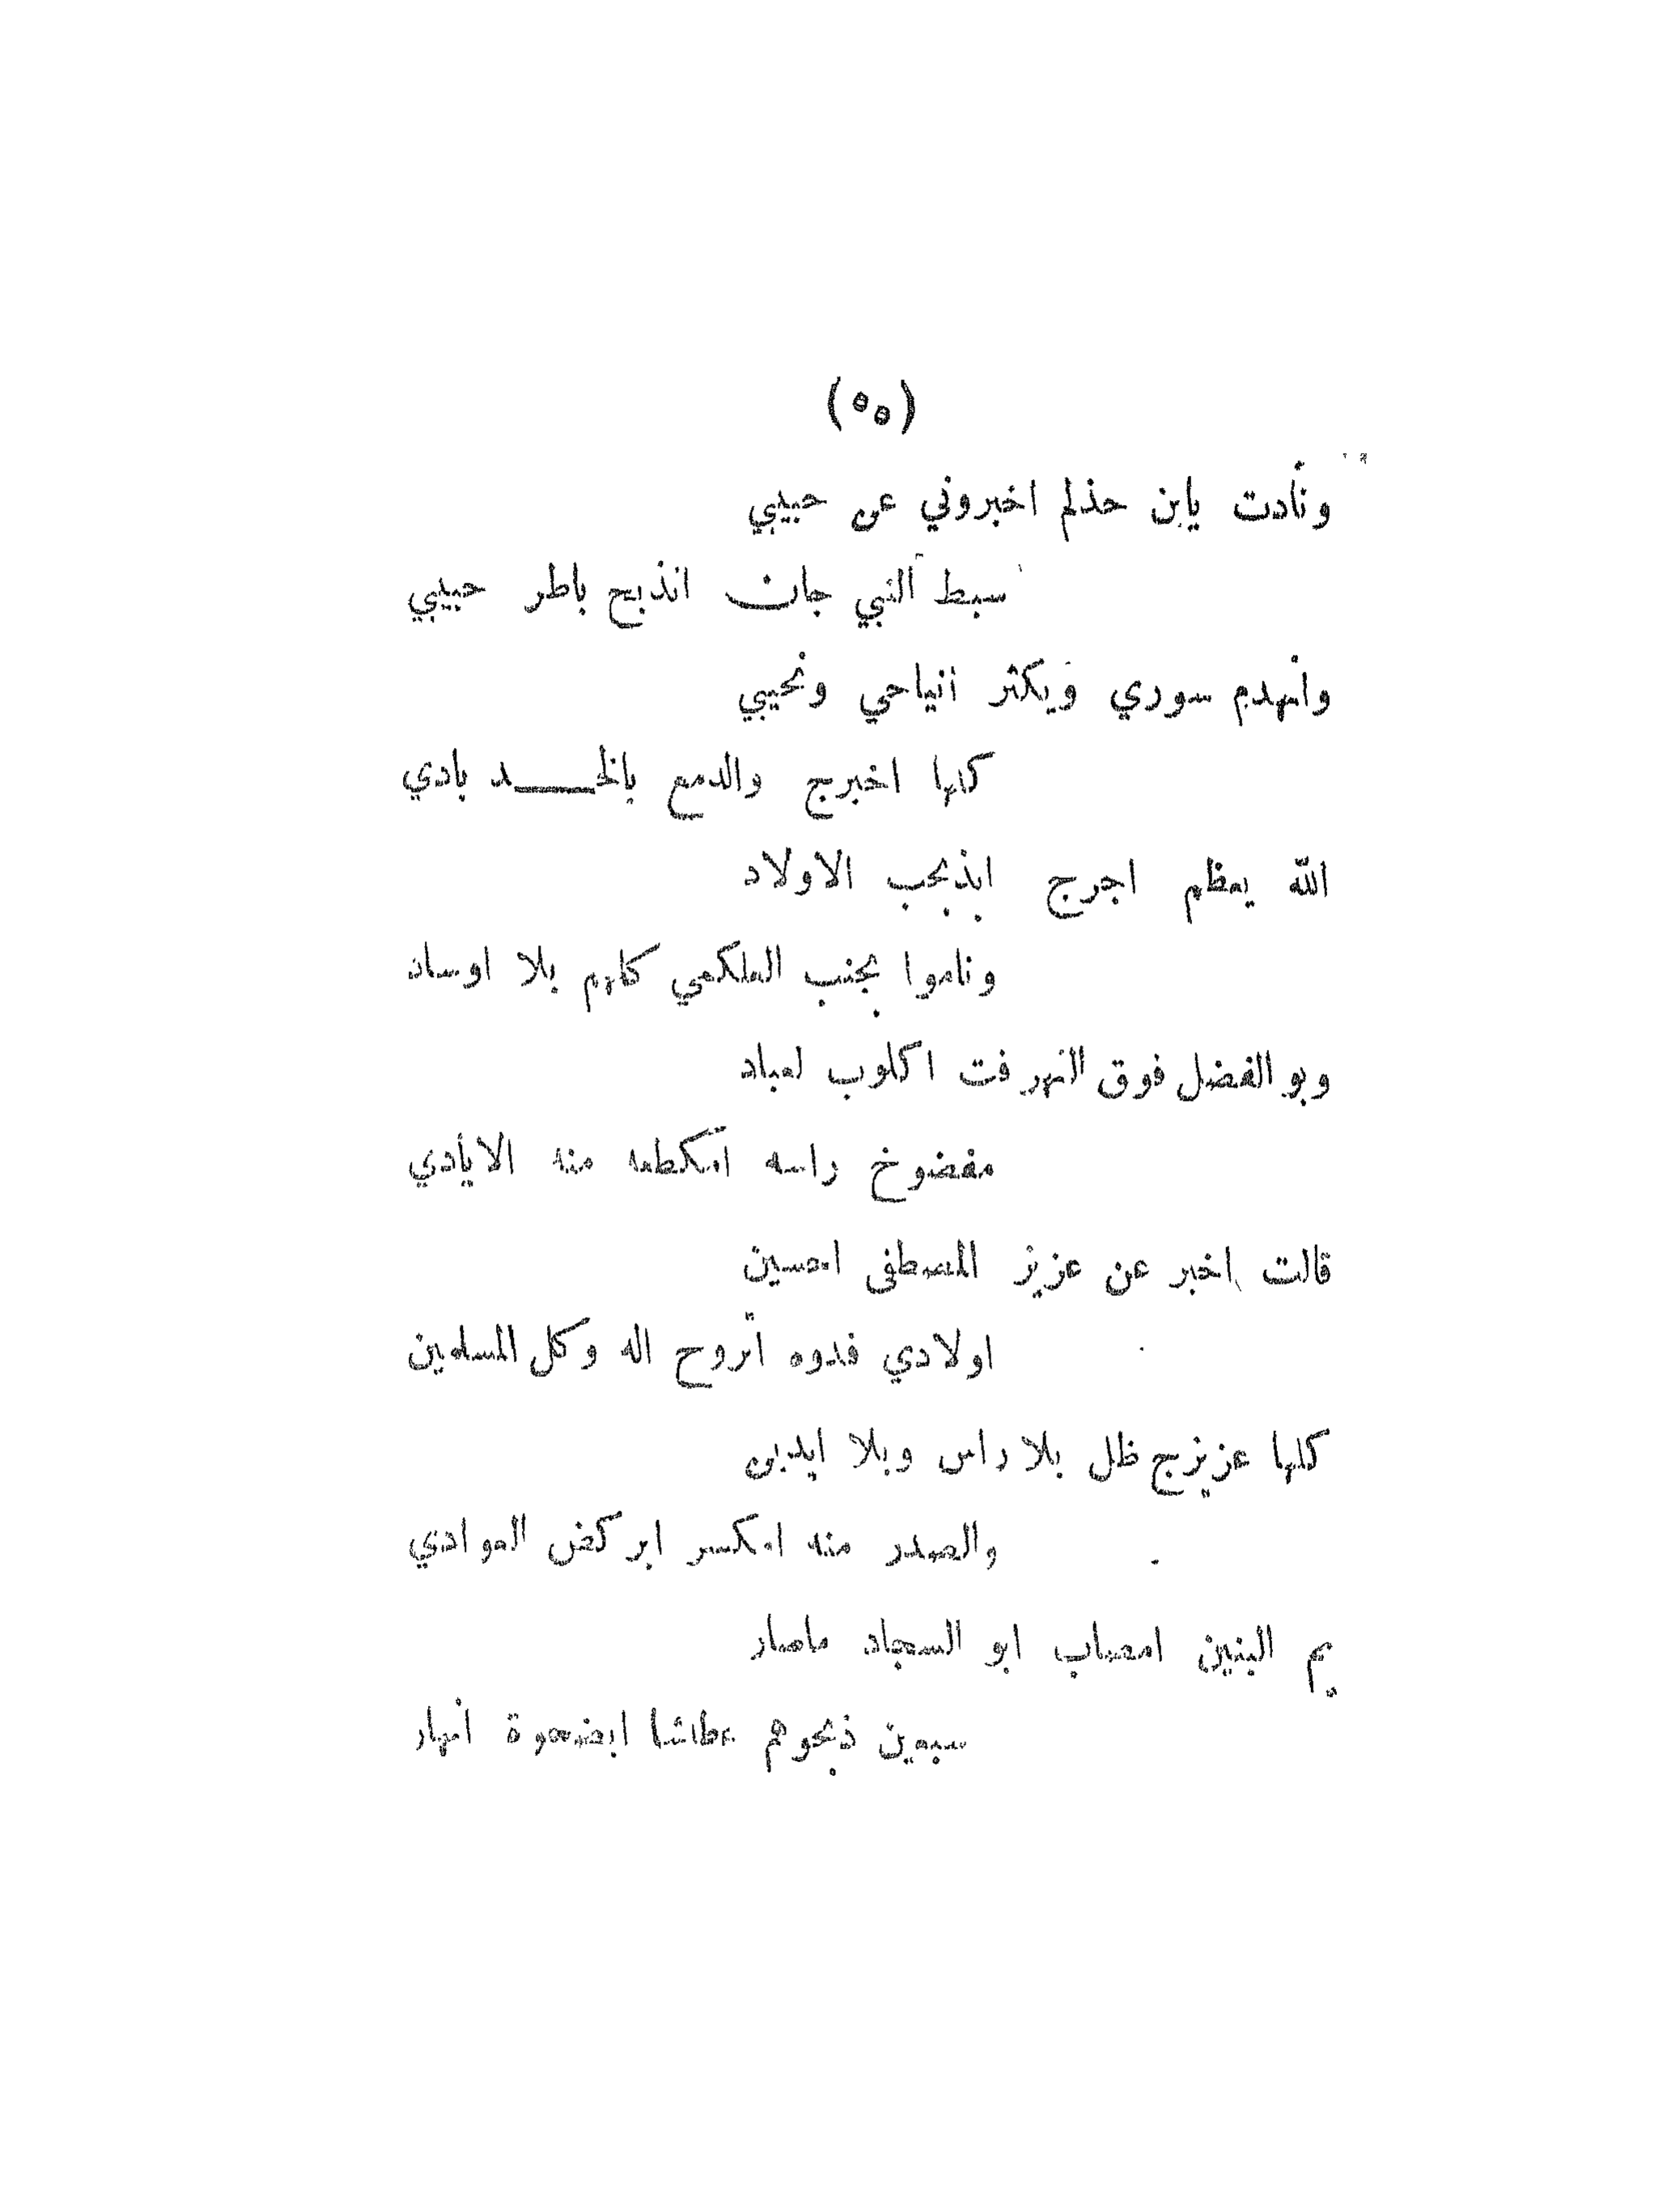 (٥٥)
ونادت يابن حذلم اخبروني عن حبيبي
سبط النبي جان انذبح باطر حبيبي
وانهدم سوري ويكثر انياحي ونحيبي
كلها اخبرج والدمع بالخـــد بادي
الله يعظم اجرج ابذبحب الاولاد
وناموا بجنب العلكمي كلهم بلا اوساد
وبو الفضل فوق النهر فت اكلوب لعباد
مفضوخ راسه امكطعه منه الايادي
قالت اخبر عن عزيز المصطفى احسين
اولادي فدوه اتروح اله وكل المسلمين
كلها عزيزج ظل بلا راس وبلا ايدين
والصدر منه امكسر ابركض العوادي
يم البنين امصاب ابو السجاد ماصار
سبعين ذبحوهم عطاشا ابضحوة انهار